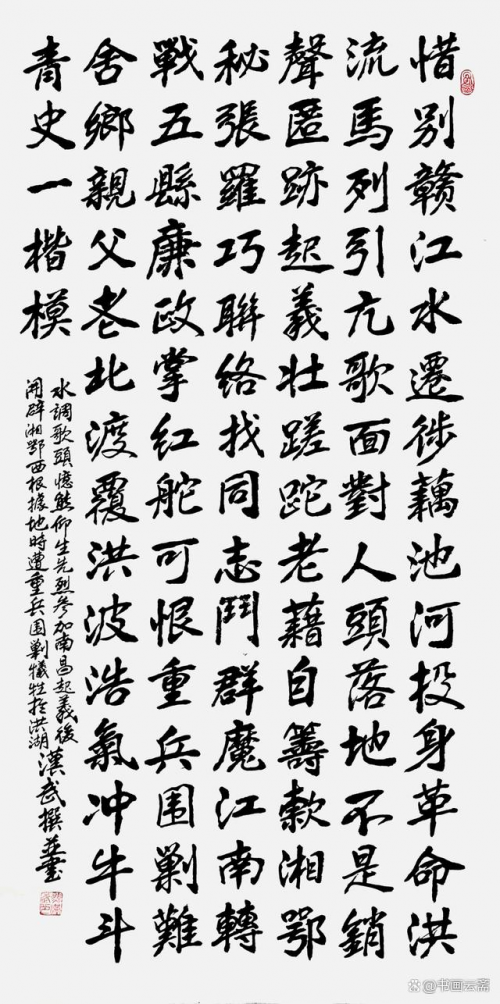 惜别赣江水遷徙藕池河投身革命洪
流馬列引亢歌面對人頭落地不是銷
聲匿跡起義壯蹉跎老藉自籌款湘鄂
秘張羅巧聯络找同志鬥群魔江南轉
戰五縣廉政掌红舵可恨重兵围剿難
舍鄉親父老北渡覆洪波浩氣冲牛斗
青史一楷模
水調歌頭憶熊仰生先烈参加南昌起義後
開辟湘鄂西根據地時遭重兵围剿犧牲於洪湖漢武撰并書
@书画云斋